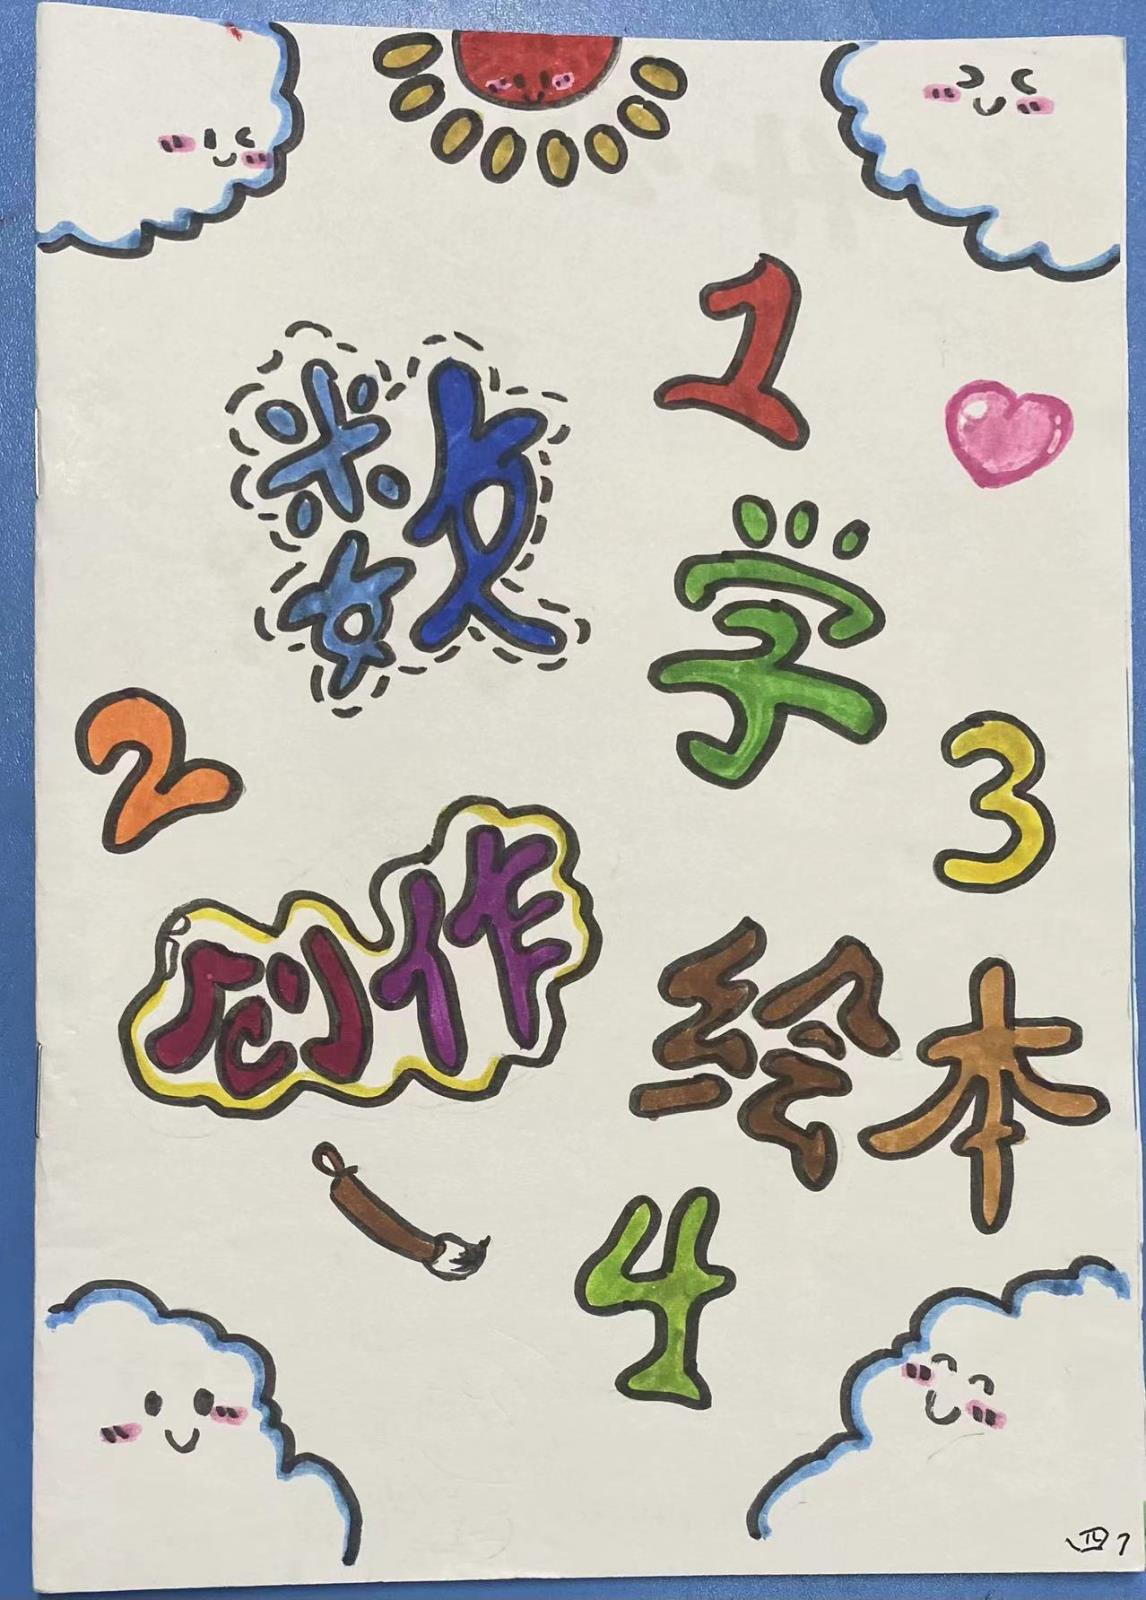 1
数字
2
3
创作
绘本
4
四7